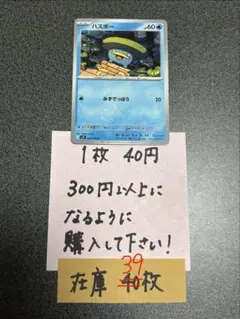 ハスボー 60
みずでっぽう 20
1枚 40円
300円以上に
なるように
購入して下さい!
39
在庫 40枚